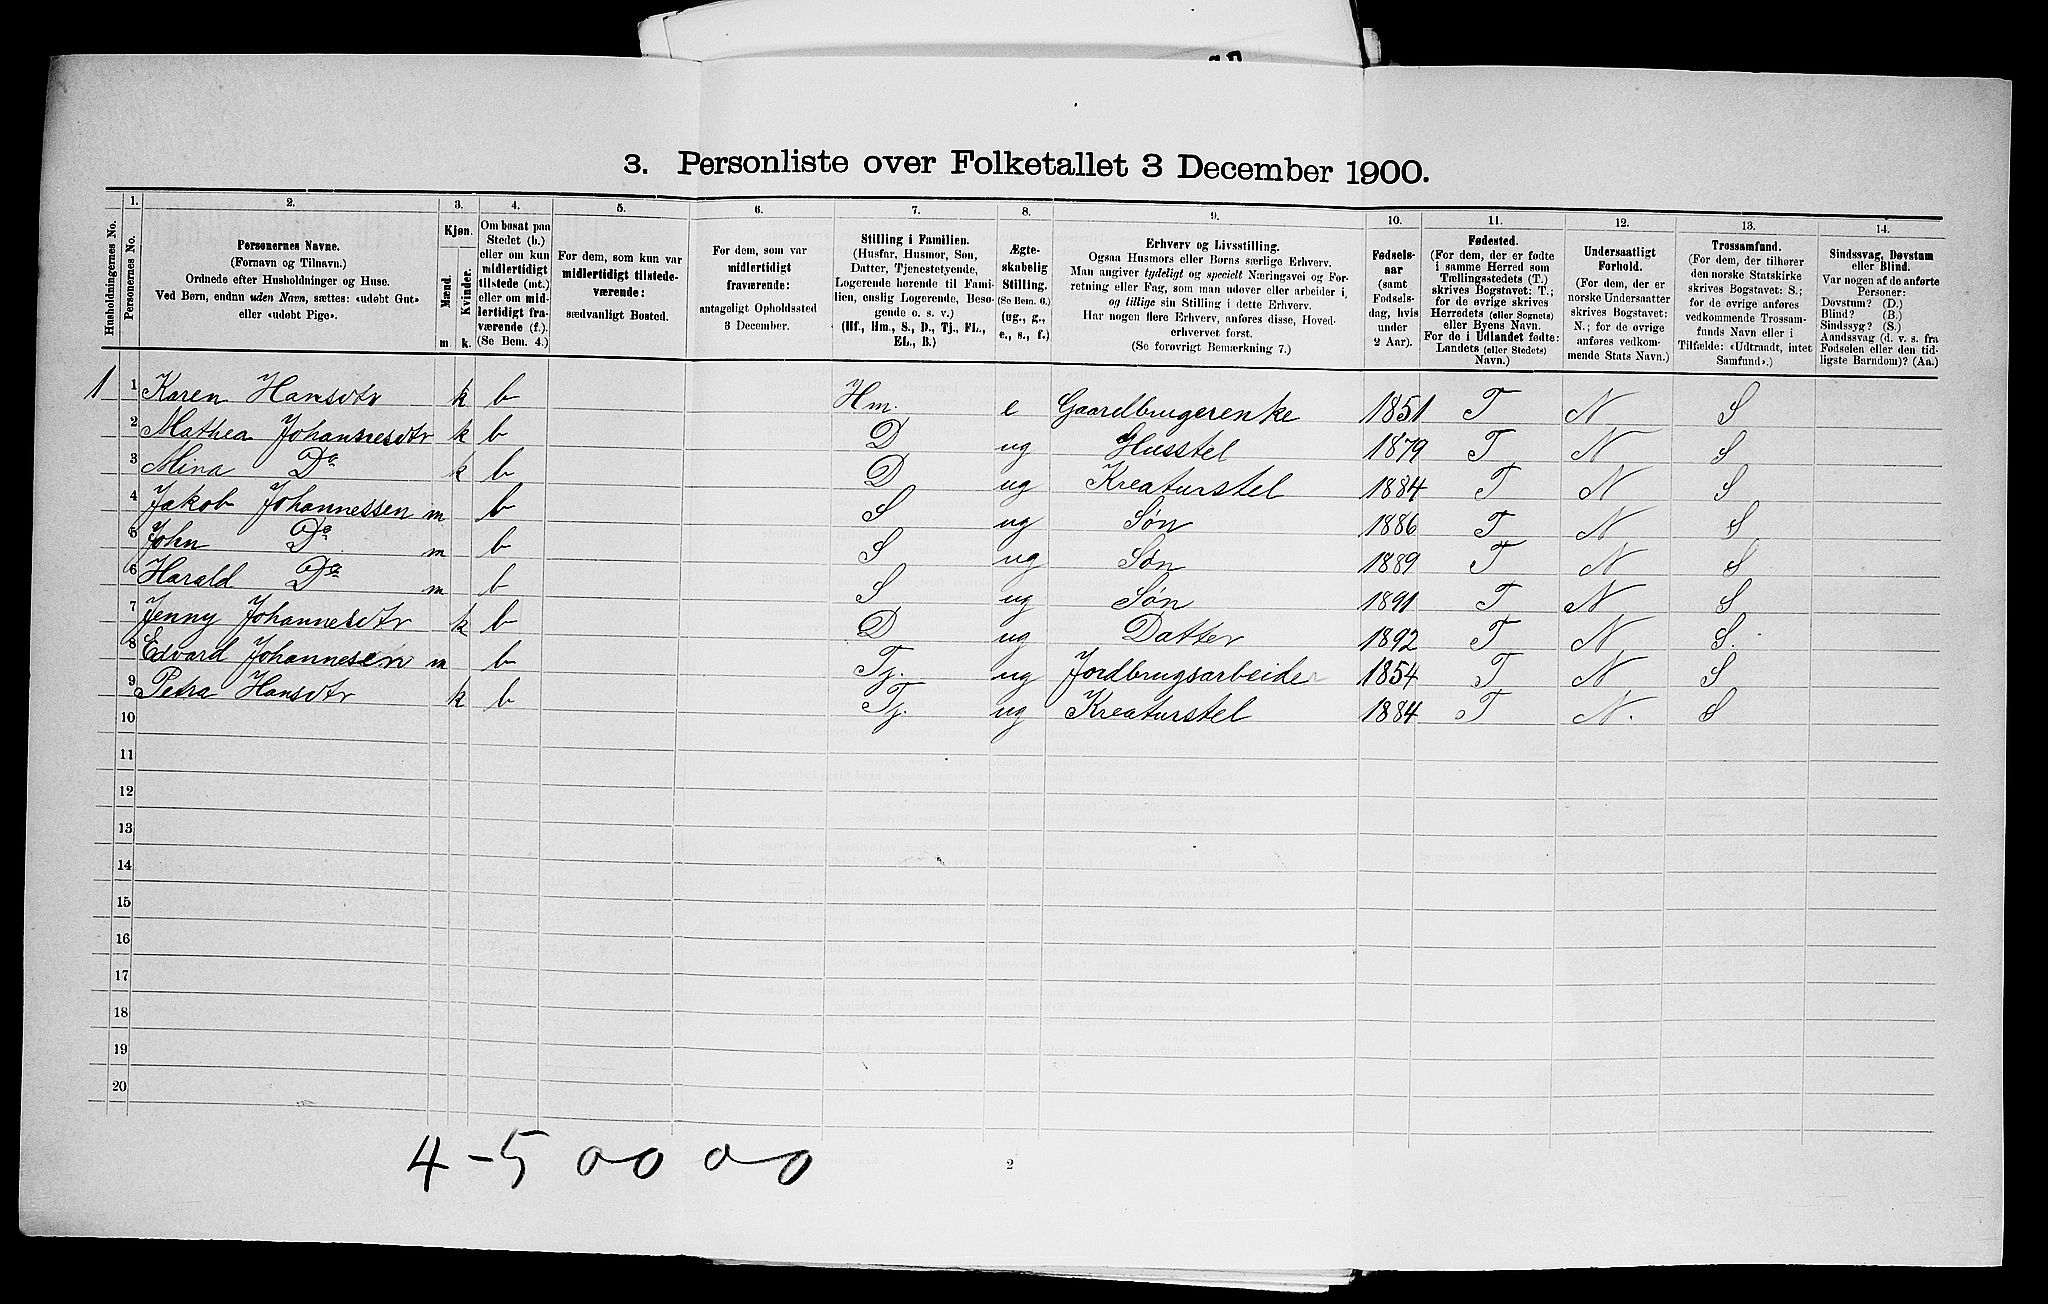 3. Personliste over Folketallet 3 December 1900.
Husholdningernes No.
1.
Personernes No.
2.
Personernes Navne.
(Fornavn og Tilnavn.)
Ordnede efter Husholdninger og Huse.
Ved Børn, endnu uden Navn, sættes: «udøbt Gut»
eller «udøbt Pige».
3.
Kjøn.
Mænd.
Kvinder.
m. k.
4.
Om bosat paa
Stedet (b.)
eller om kun
midlertidigt
tilstede (mt.)
eller om mid-
lertidigt fra-
værende (f.).
(Se Bem. 4.)
5.
For dem, som kun var
midlertidigt tilstede-
værende:
sædvanligt Bosted.
6.
For dem, som var
midlertidigt
fraværende:
antageligt Opholdssted
3 December.
7.
Stilling i Familien.
(Husfar, Husmor, Søn,
Datter, Tjenestetyende,
Logerende hørende til Fami-
lien, enslig Logerende, Besø-
gende o. s. v.)
(Hf., Hm., S., D., Tj., FL.,
EL., B.)
8.
Ægte-
skabelig
Stilling.
(Se Bem. 6.)
(ug., g.,
e., s., f.)
9.
Erhverv og Livsstilling.
Ogsaa Husmors eller Børns særlige Erhverv.
Man angiver tydeligt og specielt Næringsvei og For-
retning eller Fag, som man udøver eller arbeider i,
og tillige sin Stilling i dette Erhverv.
Har nogen flere Erhverv, anføres disse, Hoved-
erhvervet først.
(Se forøvrigt Bemærkning 7.)
10.
Fødsels-
aar
(samt
Fødsels-
dag, hvis
under
2 Aar).
11.
Fødested.
(For dem, der er fødte
i samme Herred som
Tællingsstedets (T.)
skrives Bogstavet: T.;
for de øvrige skrives
Herredets (eller Sognets)
eller Byens Navn.
For de i Udlandet fødte:
Landets (eller Stedets)
Navn.)
12.
Undersaatligt
Forhold.
(For dem, der er
norske Undersaatter
skrives Bogstavet:
N.; for de øvrige
anføres vedkom-
mende Stats Navn.)
13.
Trossamfund.
(For dem, der tilhører
den norske Statskirke
skrives Bogstavet: S.;
for de øvrige anføres
vedkommende Trossam-
funds Navn eller i
Tilfælde: «Udtraadt, intet
Samfund».)
14.
Sindssvag, Døvstum
eller Blind.
Var nogen af de anførte
Personer:
Døvstum? (D.)
Blind? (B.)
Sindssyg? (S.)
Aandssvag (d. v. s. fra
Fødselen eller den tid-
ligste Barndom)? (Aa.)
1 1 Karen Hansdtr k b Hm. e Gaardbrugerenke 1851 T N S
2 Mathea Johannesdtr k b D ug Husstel 1879 T N S
3 Mina Do k b D ug Kreaturstel 1884 T N S
4 Jakob Johannessen m b S ug Søn 1886 T N S
5 John Do m b S ug Søn 1889 T N S
6 Harald Do m b S ug Søn 1891 T N S
7 Jenny Johannesdtr k b D ug Datter 1892 T N S.
8 Edvard Johannesen m b Tj. ug Jordbrugsarbeider 1854 T N S
9 Petra Hansdtr k b Tj. ug Kreaturstel 1884 T N. S
10
11
12
13
14
15
16
17
18
19
20
4-5 00 00
2